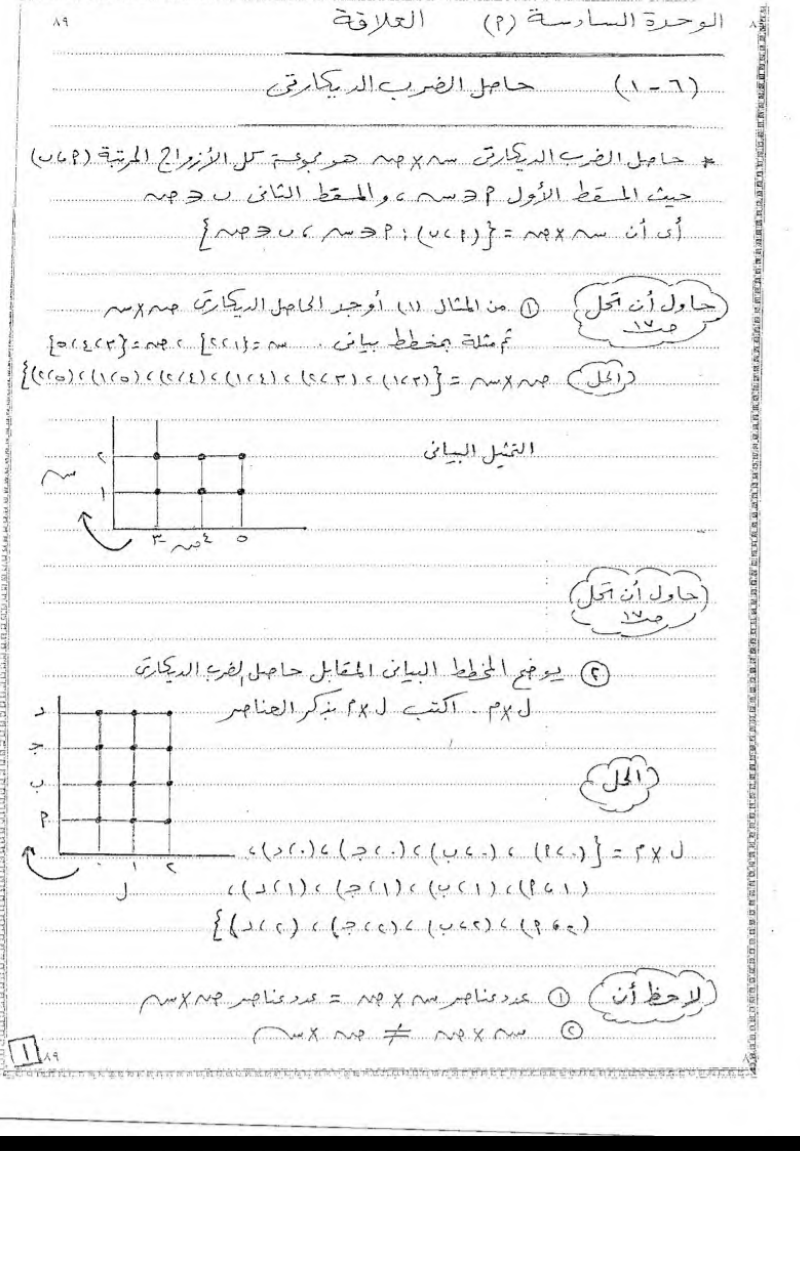 ٨٩
الوحدة السادسة (٢) العلاقة
(٦ - ١) حاصل الضرب الديكارتى
* حاصل الضرب الديكارتى سـ × صـ هو مجموعة كل الأزواج المرتبة (٢، ب)
حيث المسقط الأول ٢ ∈ سـ ، والمسقط الثانى ب ∈ صـ
أى أن سـ × صـ = {(٢، ب) : ٢ ∈ سـ ، ب ∈ صـ}
حاول أن تحل صـ ١٧ ① من المثال (١) أوجد الحاصل الديكارتى صـ × سـ
ثم مثلة بمخطط بيانى . سـ = {١، ٢} ، صـ = {٣، ٤، ٥}
الحل صـ × سـ = {(٣، ١) ، (٣، ٢) ، (٤، ١) ، (٤، ٢) ، (٥، ١) ، (٥، ٢)}
التمثيل البيانى
٢
سـ
١
٣ صـ ٤ ٥
حاول أن تحل
صـ ١٧
② يوضح المخطط البيانى المقابل حاصل الضرب الديكارتى
ل × م . اكتب ل × م بذكر العناصر
د
جـ
ب
٢
الحل
ل × م = {(٠، ٢) ، (٠، ب) ، (٠، جـ) ، (٠، د) ،
٠ ١ ٢
ل
(١، ٢) ، (١، ب) ، (١، جـ) ، (١، د) ،
(٢، ٢) ، (٢، ب) ، (٢، جـ) ، (٢، د)}
لاحظ أن ① عدد عناصر سـ × صـ = عدد عناصر صـ × سـ
② سـ × صـ ≠ صـ × سـ
١ ٨٩